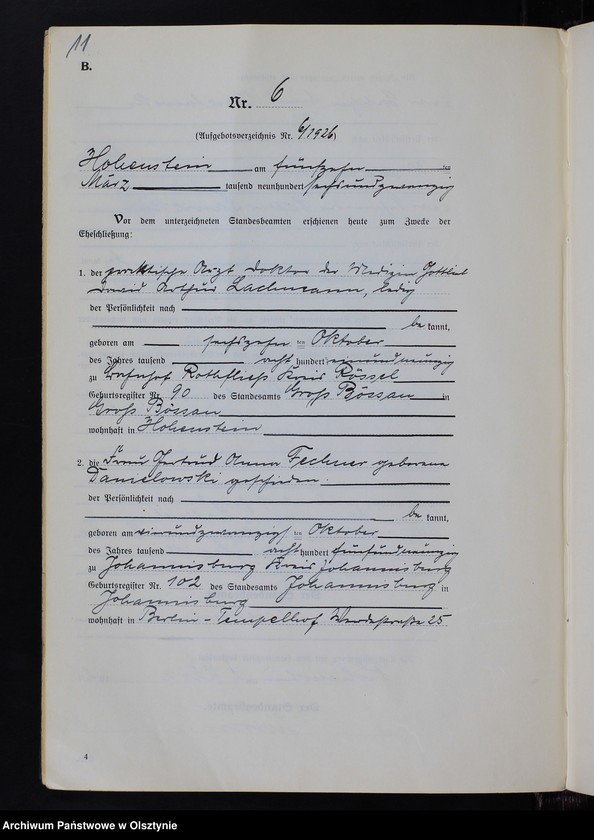 11
B.
Nr. 6
(Aufgebotsverzeichnis Nr. 6/1926)
Hohenstein am fünfzehn ten
März tausend neunhundert sechsundzwanzig
Vor dem unterzeichneten Standesbeamten erschienen heute zum Zwecke der
Eheschließung:
1. der praktische Arzt Doktor der Medizin Gottlieb
David Arthur Lachmann, ledig
der Persönlichkeit nach
be kannt,
geboren am sechszehn ten Oktober
des Jahres tausend acht hundert einundneunzig
zu Bahnhof Rothfließ Kreis Rössel
Geburtsregister Nr. 90 des Standesamts Groß Bössau in
Groß Bössau
wohnhaft in Hohenstein
2. die Frau Gertrud Anna Fechner geborene
Danielowski geschieden.
der Persönlichkeit nach
be kannt,
geboren am vierundzwanzigs ten Oktober
des Jahres tausend acht hundert fünfundneunzig
zu Johannisburg Kreis Johannisburg
Geburtsregister Nr. 102 des Standesamts Johannisburg in
Johannisburg
wohnhaft in Berlin-Tempelhof 25
4
Archiwum Państwowe w Olsztynie